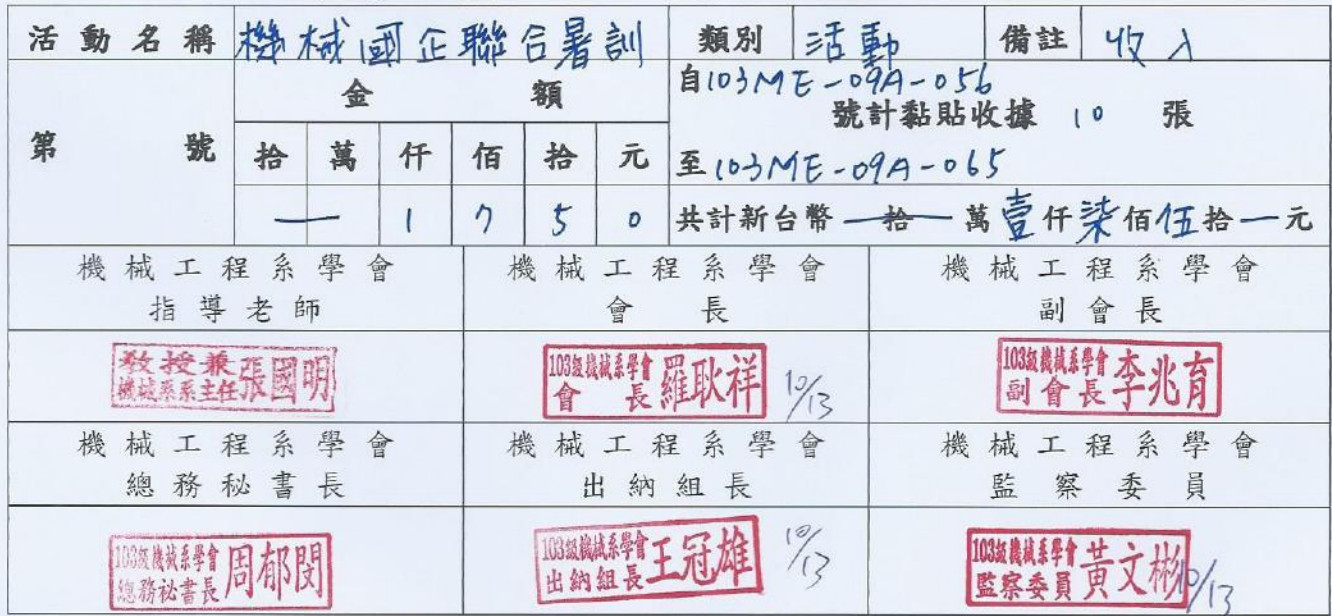 活動名稱 機械國企聯合暑訓 類別 活動 備註 收入
第 號
金額
拾 萬 仟 佰 拾 元
— 1 7 5 0
自103ME-09A-056
號計黏貼收據 10 張
至103ME-09A-065
共計新台幣 拾 萬 壹 仟 柒 佰 伍 拾 — 元
機械工程系學會 機械工程系學會 機械工程系學會
指導老師 會長 副會長
教授兼
機械系系主任 張國明
103級機械系學會
會長 羅耿祥 10/13
103級機械系學會
副會長 李兆育
機械工程系學會 機械工程系學會 機械工程系學會
總務秘書長 出納組長 監察委員
103級機械系學會
總務祕書長 周郁閔
103級機械系學會
出納組長 王冠雄 10/13
103級機械系學會
監察委員 黃文彬 10/13